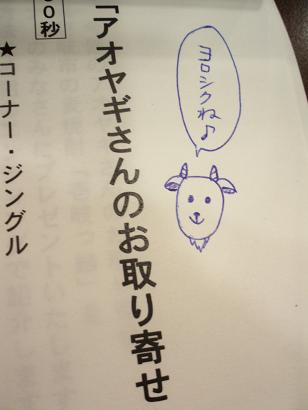 ヨロシクね♪
「アオヤギさんのお取り寄せ
0秒
★コーナー・ジングル